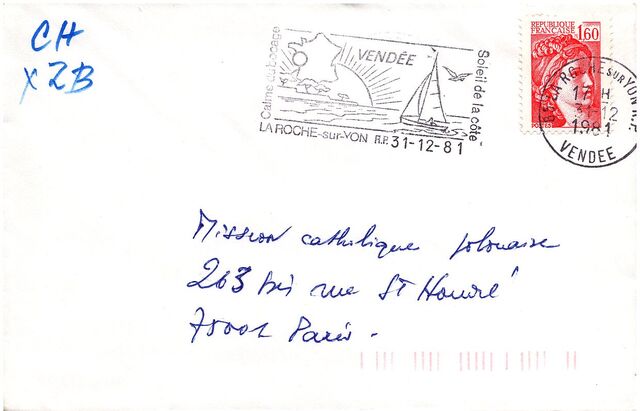 CH
x 2B
Calme du bocage
VENDÉE
Soleil de la côte
LA ROCHE-sur-YON R.P. 31-12-81
REPUBLIQUE
FRANCAISE 1,60
LA ROCHE SUR YON R.P.
17 H
31-12
1981
VENDEE
Mission catholique polonaise
263 bis rue St Honoré
75001 Paris.